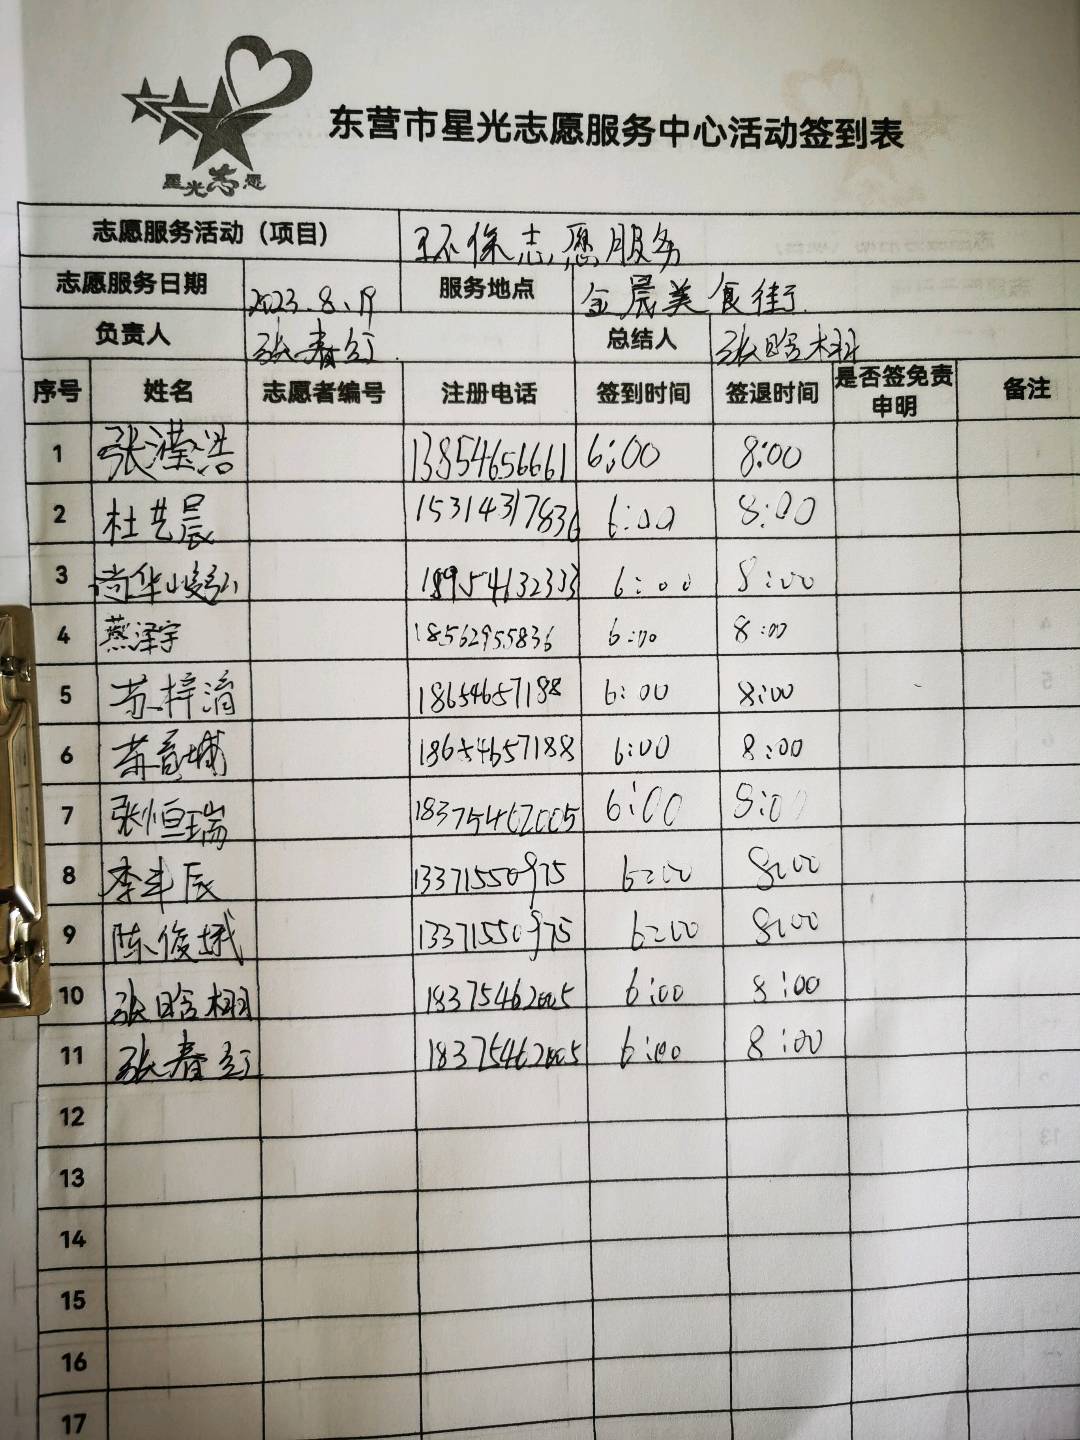 星光志愿
东营市星光志愿服务中心活动签到表
志愿服务活动（项目） 环保志愿服务
志愿服务日期 2023.8.19 服务地点 金晨美食街
负责人 张春红 总结人 张晗栩
序号 姓名 志愿者编号 注册电话 签到时间 签退时间 是否签免责申明 备注
1 张滢浩 13854656661 6:00 8:00
2 杜艺晨 15314317836 6:00 8:00
3 尚华峻弘 18954132333 6:00 8:00
4 燕泽宇 18562955836 6:00 8:00
5 苏梓淯 18654657188 6:00 8:00
6 18654657188 6:00 8:00
7 张恒瑞 18375462005 6:00 8:00
8 李丰辰 13371550975 6:00 8:00
9 陈俊城 13371550975 6:00 8:00
10 张晗栩 18375462005 6:00 8:00
11 张春红 18375462005 6:00 8:00
12
13
14
15
16
17